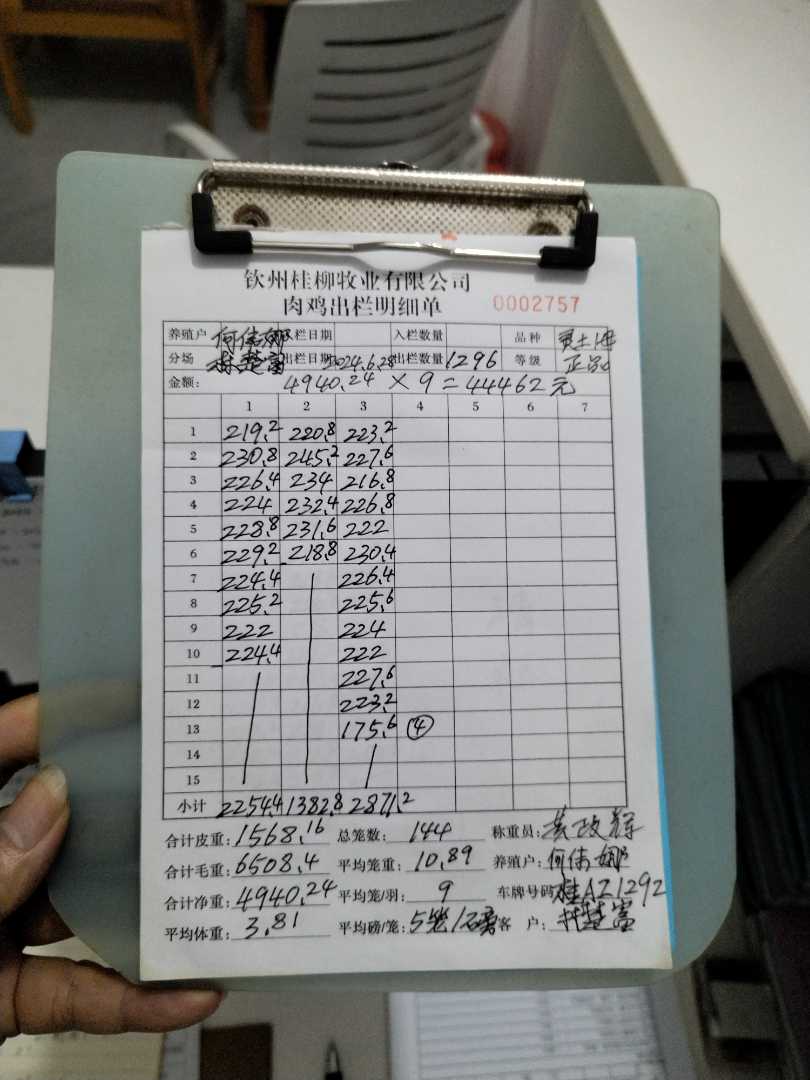 钦州桂柳牧业有限公司
肉鸡出栏明细单 0002757
养殖户 何伟娜 入栏日期 入栏数量 品种
分场 林楚富 出栏日期 2024.6.28 出栏数量 1296 等级 正品
金额: 4940.24 × 9 = 44462元
1 2 3 4 5 6 7
1 219.2 220.8 223.2
2 230.8 245.2 227.6
3 226.4 234 216.8
4 224 232.4 226.8
5 228.8 231.6 222
6 229.2 218.8 230.4
7 224.4 226.4
8 225.2 225.6
9 222 224
10 224.4 222
11 227.6
12 223.2
13 175.6 ④
14
15
小计 2254.4 1382.8 2871.2
合计皮重: 1568.16 总笼数: 144 称重员: 黄政辉
合计毛重: 6508.4 平均笼重: 10.89 养殖户: 何伟娜
合计净重: 4940.24 平均笼/羽: 9 车牌号码: 桂AZ1292
平均体重: 3.81 平均磅/笼: 5笼/磅 客 户: